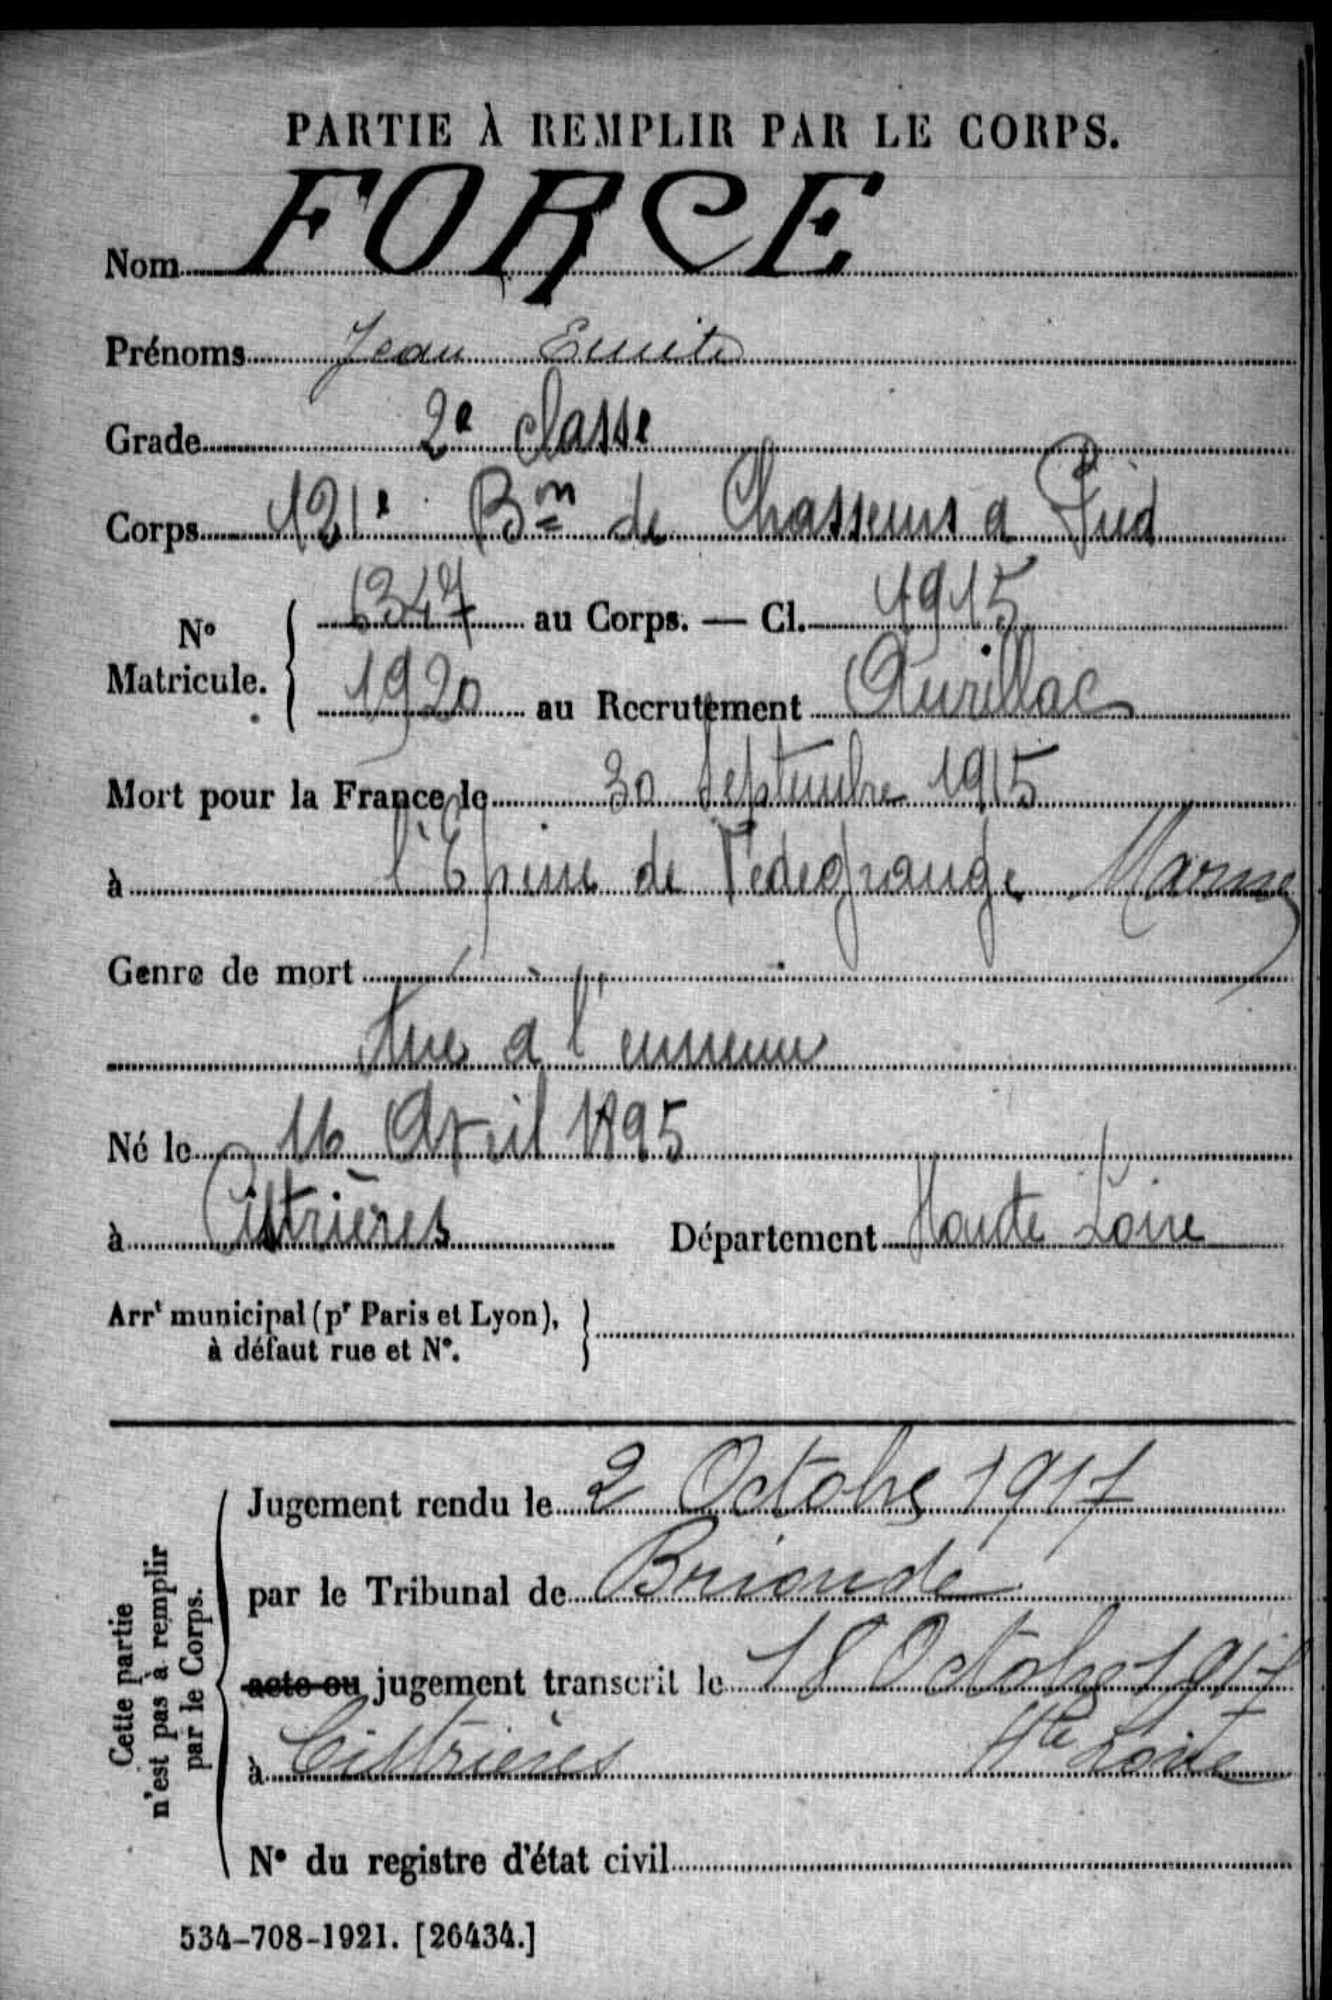 PARTIE À REMPLIR PAR LE CORPS.
Nom FORCE
Prénoms Jean Emile
Grade 2e classe
Corps 121e Bon de Chasseurs a Pied
N° Matricule. { 6347 au Corps. — Cl. 1915
1920 au Recrutement Aurillac
Mort pour la France le 30 Septembre 1915
à l'Epine de Vedegrange Marne
Genre de mort
Tué à l'ennemi
Né le 16 Avril 1895
à Cistrières Département Haute Loire
Arrt municipal (pr Paris et Lyon), à défaut rue et N°.
Cette partie n'est pas à remplir par le Corps.
Jugement rendu le 2 Octobre 1917
par le Tribunal de Brioude
acte ou jugement transcrit le 18 Octobre 1917
à Cistrières Hte Loire
N° du registre d'état civil
534-708-1921. [26434.]